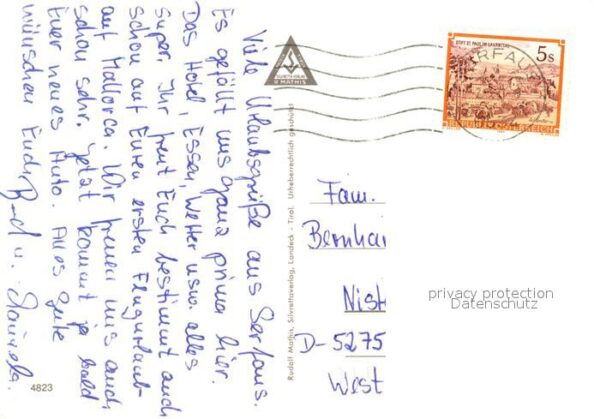 Viele Urlaubsgrüße aus Serfaus.
Es gefällt uns ganz prima hier.
Das Hotel, Essen, Wetter usw. alles
Super. Ihr freut Euch bestimmt auch
schon auf Euren ersten Flugurlaub
auf Mallorca. Wir freuen uns auch
schon sehr. Jetzt kommt ja bald
Euer neues Auto. Alles Gute
wünschen Euch
4823
Rudolf Mathis, Silvrettaverlag, Landeck - Tirol. Urheberrechtlich geschützt
MATHIS
STIFT ST. PAUL IM LAVANTTAL
5s
REPUBLIK ÖSTERREICH
Fam.
Bernhar
Nist
D-5275
West
privacy protection
Datenschutz